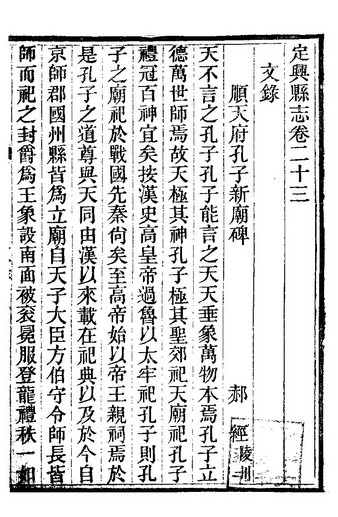 定興縣志卷二十三
文錄
順天府孔子新廟碑
郝經陵川
天不言之孔子孔子能言之天天垂象萬物本焉孔子立
德萬世師焉故天極其神孔子極其聖郊祀天廟祀孔子
禮冠百神宜矣按漢史高皇帝過魯以太牢祀孔子則孔
子之廟祀於戰國先秦尙矣至高帝始以帝王親祠焉於
是孔子之道尊與天同由漢以來載在祀典以及於今自
京師郡國州縣皆爲立廟自天子大臣方伯守令師長皆
師而祀之封爵爲王象設南面被袞冕服登龍禮秩一如